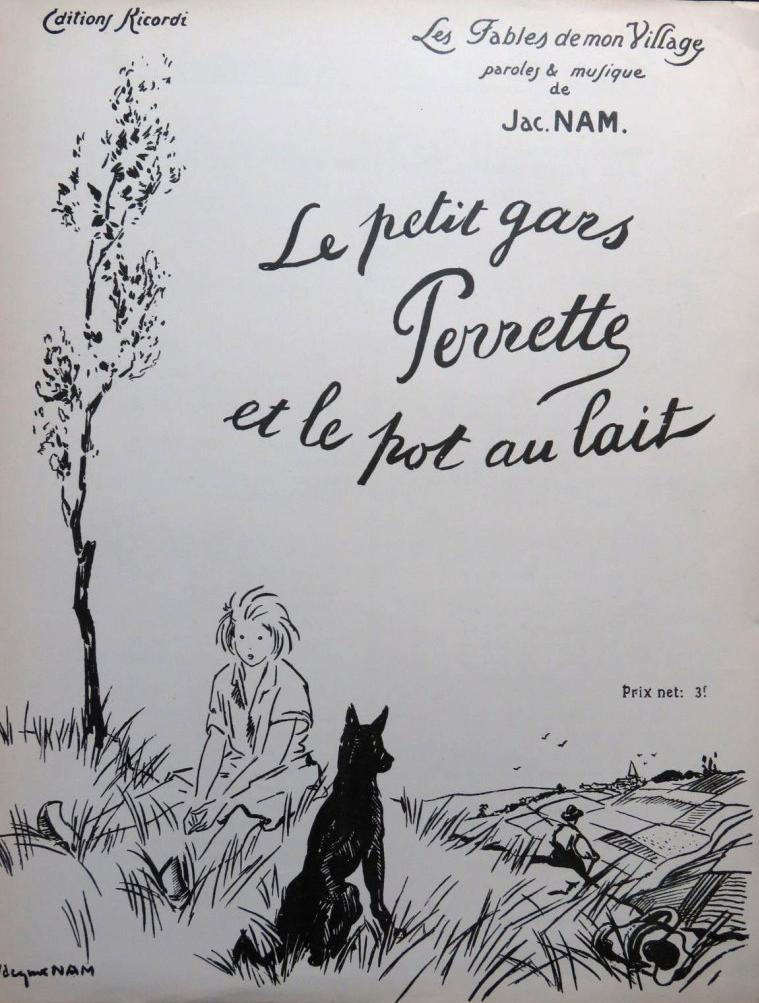 Editions Ricordi
Les Fables de mon Village
paroles & musique
de
Jac. NAM.
Le petit gars
Perrette
et le pot au lait
Prix net: 3f
Jacques NAM